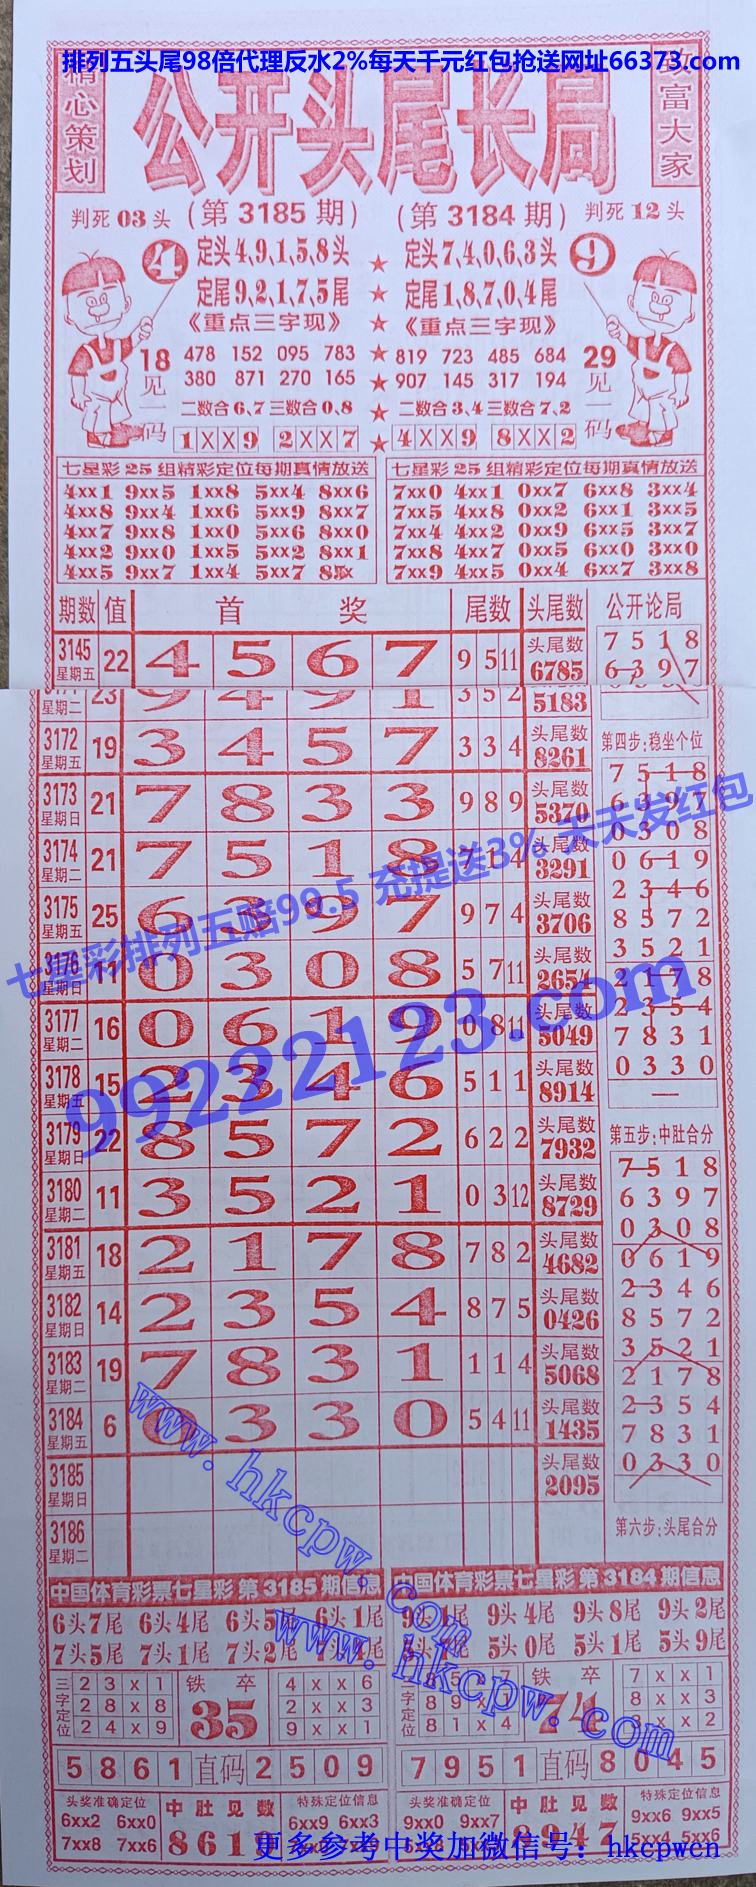 排列五头尾98倍代理反水2%每天千元红包抢送网址66373.com
精心策划
公开头尾长局
致富大家
判死03头 (第3185期) (第3184期) 判死12头
4 定头4,9,1,5,8头 ★ 定头7,4,0,6,3头 9
定尾9,2,1,7,5尾 ★ 定尾1,8,7,0,4尾
《重点三字现》 ★ 《重点三字现》
18见一码 478 152 095 783 ★ 819 723 485 684 29见一码
380 871 270 165 ★ 907 145 317 194
二数合6,7三数合0,8 ★ 二数合3,4三数合7,2
1XX9 2XX7 ★ 4XX9 8XX2
七星彩25组精彩定位每期真情放送 七星彩25组精彩定位每期真情放送
4xx1 9xx5 1xx8 5xx4 8xx6 7xx0 4xx1 0xx7 6xx8 3xx4
4xx8 9xx4 1xx6 5xx9 8xx7 7xx5 4xx8 0xx2 6xx1 3xx5
4xx7 9xx8 1xx0 5xx6 8xx0 7xx4 4xx2 0xx9 6xx5 3xx7
4xx2 9xx0 1xx5 5xx2 8xx1 7xx8 4xx7 0xx5 6xx0 3xx0
4xx5 9xx7 1xx4 5xx7 7xx9 4xx5 0xx4 6xx7 3xx8
期数 值 首 奖 尾数 头尾数 公开论局
3145 星期五 22 4 5 6 7 9 5 11 头尾数 6785
7 5 1 8
6 3 9 7
星期二 23 9 4 9 1 3 5 2 5183
3172 星期五 19 3 4 5 7 3 3 4 头尾数 8261
3173 星期日 21 7 8 3 3 9 8 9 头尾数 5370
3174 星期二 21 7 5 1 8 7 1 4 头尾数 3291
3175 星期五 25 6 3 9 7 9 7 4 头尾数 3706
3176 星期日 11 0 3 0 8 5 7 11 头尾数 2654
3177 星期二 16 0 6 1 9 0 8 11 头尾数 5049
3178 星期五 15 2 3 4 6 5 1 1 头尾数 8914
3179 星期日 22 8 5 7 2 6 2 2 头尾数 7932
3180 星期二 11 3 5 2 1 0 3 12 头尾数 8729
3181 星期五 18 2 1 7 8 7 8 2 头尾数 4682
3182 星期日 14 2 3 5 4 8 7 5 头尾数 0426
3183 星期二 19 7 8 3 1 1 1 4 头尾数 5068
3184 星期五 6 0 3 3 0 5 4 11 头尾数 1435
3185 星期日 头尾数 2095
3186 星期二
第四步:稳坐个位
7 5 1 8
6 3 9 7
0 3 0 8
0 6 1 9
2 3 4 6
8 5 7 2
3 5 2 1
2 1 7 8
2 3 5 4
7 8 3 1
0 3 3 0
—
第五步:中肚合分
7 5 1 8
6 3 9 7
0 3 0 8
0 6 1 9
2 3 4 6
8 5 7 2
3 5 2 1
2 1 7 8
2 3 5 4
7 8 3 1
0 3 3 0
第六步:头尾合分
七星彩排列五赔99.5 充提送3% 天天发红包
99222123.com
www.hkcpw.com
www.hkcpw.com
中国体育彩票七星彩第3185期信息 中国体育彩票七星彩第3184期信息
6头7尾 6头4尾 6头5尾 6头1尾 9头1尾 9头4尾 9头8尾 9头2尾
7头5尾 7头1尾 7头2尾 5头0尾 5头1尾 5头9尾
三字定位 铁卒 35
2 3 x 1
2 8 x 8
2 4 x 9
4 x x 6
2 x x 3
9 x x 1
三字定位 铁卒 74
8 1 x 4
7 x x 1
8 x x 3
x x 2
5861 直码 2509 7951 直码 8045
头奖准确定位 中肚见数 特殊定位信息 头奖准确定位 中肚见数 特殊定位信息
6xx2 6xx0 6xx9 6xx3 9xx0 9xx7 9xx6 9xx5
7xx8 7xx6 861 8947 5xx4 5xx6
更多参考中奖加微信号：hkcpwcn